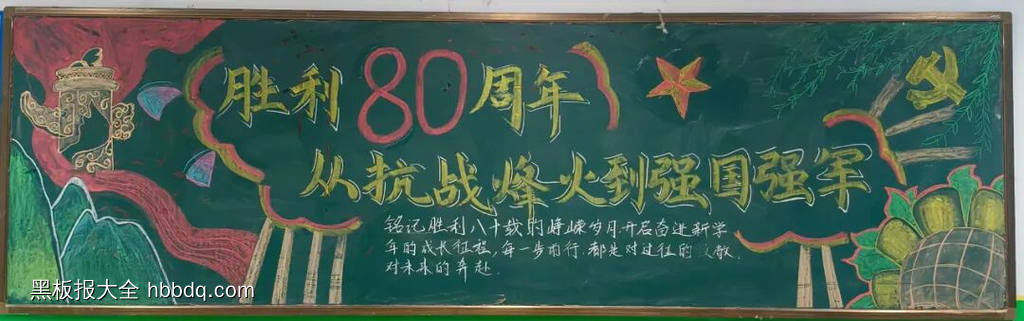 胜利80周年
从抗战烽火到强国强军
铭记胜利八十载的峥嵘岁月.开启奋进新学
年的成长征程,每一步前行.都是对过往的致敬.
对未来的奔赴.
黑板报大全 hbbdq.com